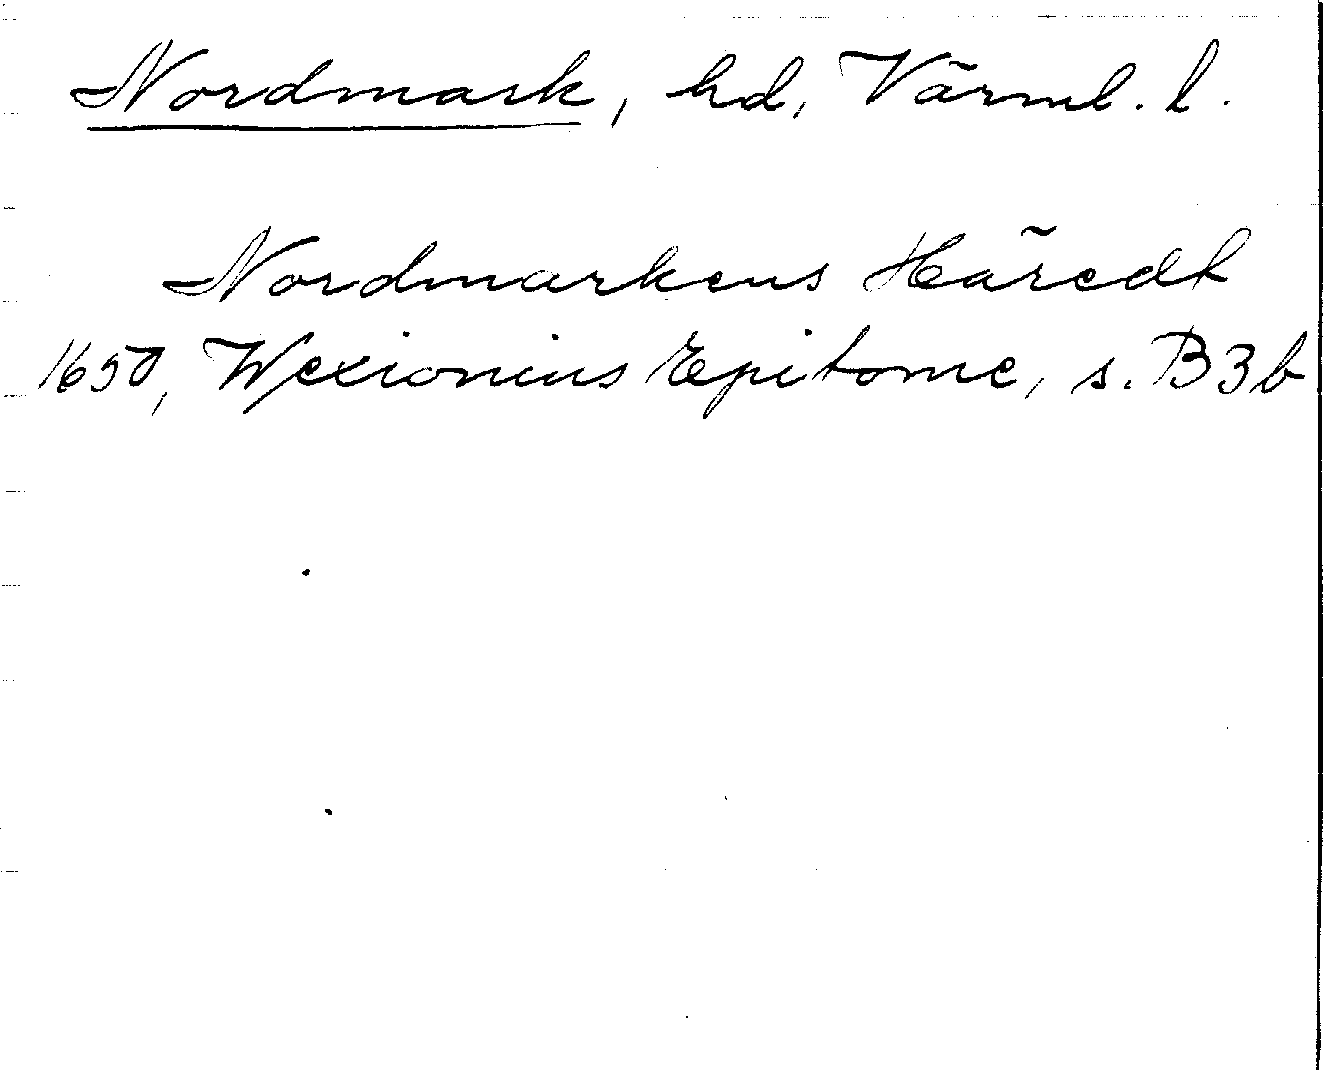 Nordmark, hd, Värml. l.
Nordmarkens Häredt
1650, Wexionius Epitome, s. B3b